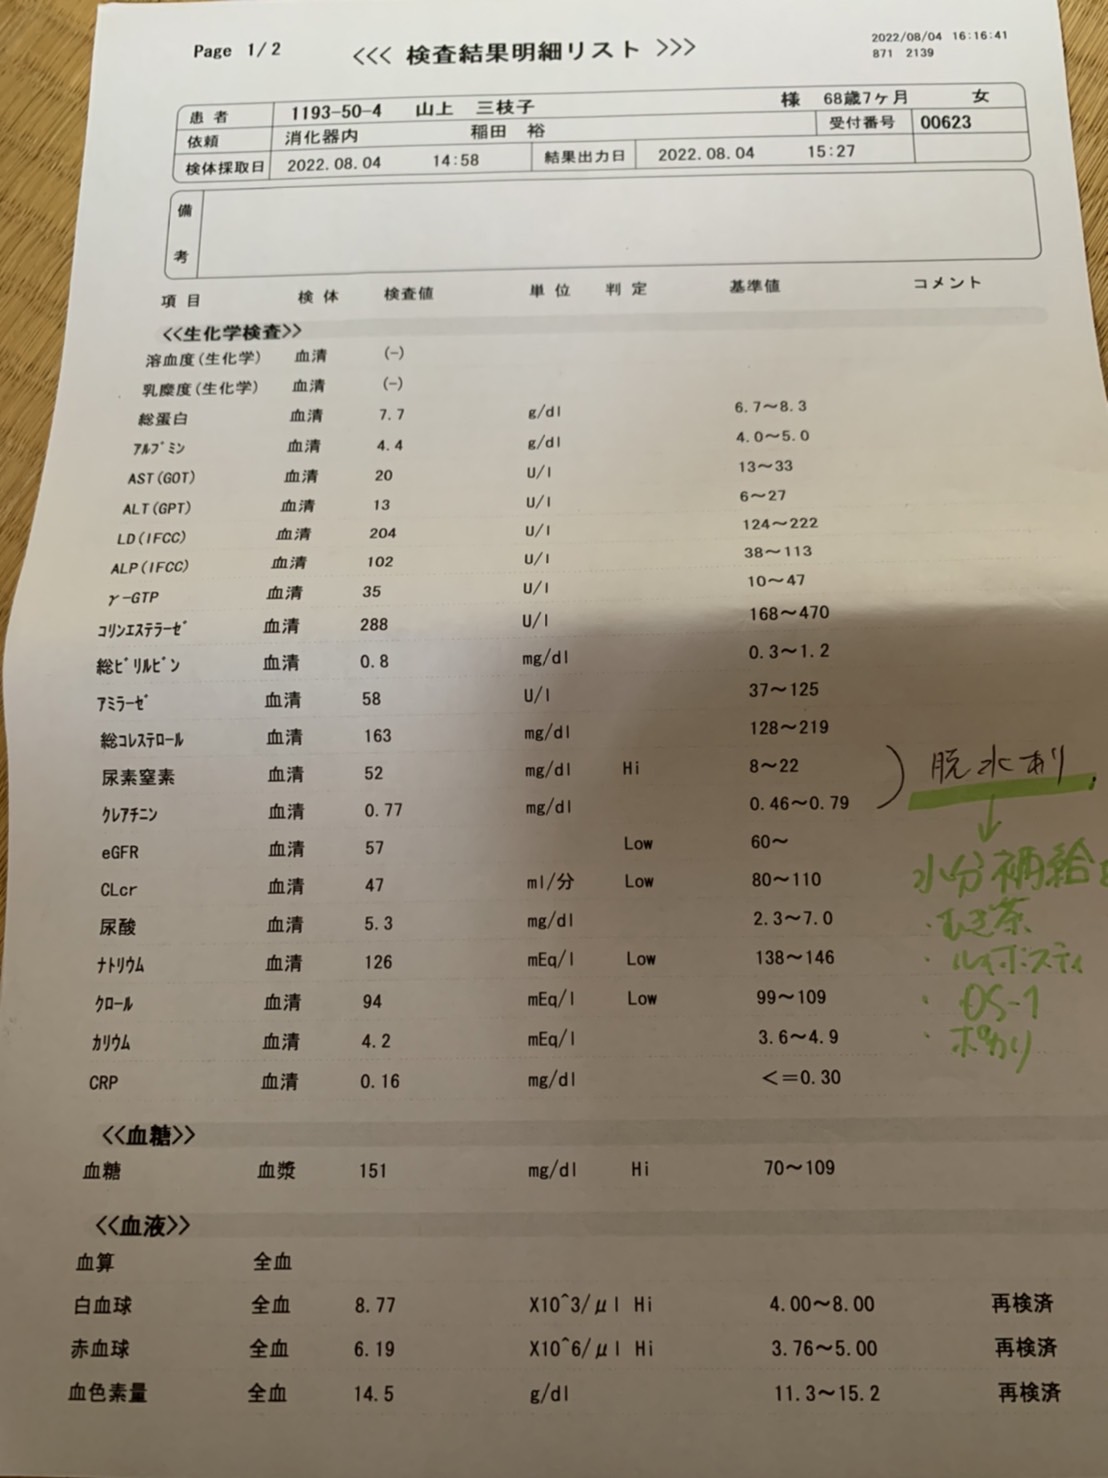 Page 1/2
<<< 検査結果明細リスト >>>
2022/08/04 16:16:41
871 2139
患者 1193-50-4 山上 三枝子 様 68歳7ヶ月 女
依頼 消化器内 稲田 裕 受付番号 00623
検体採取日 2022.08.04 14:58 結果出力日 2022.08.04 15:27
備考
項目 検体 検査値 単位 判定 基準値 コメント
<<生化学検査>>
溶血度(生化学) 血清 (-)
乳糜度(生化学) 血清 (-)
総蛋白 血清 7.7 g/dl 6.7~8.3
アルブミン 血清 4.4 g/dl 4.0~5.0
AST(GOT) 血清 20 U/l 13~33
ALT(GPT) 血清 13 U/l 6~27
LD(IFCC) 血清 204 U/l 124~222
ALP(IFCC) 血清 102 U/l 38~113
γ-GTP 血清 35 U/l 10~47
コリンエステラーゼ 血清 288 U/l 168~470
総ビリルビン 血清 0.8 mg/dl 0.3~1.2
アミラーゼ 血清 58 U/l 37~125
総コレステロール 血清 163 mg/dl 128~219
尿素窒素 血清 52 mg/dl Hi 8~22
クレアチニン 血清 0.77 mg/dl 0.46~0.79
脱水あり
eGFR 血清 57 Low 60~
CLcr 血清 47 ml/分 Low 80~110
尿酸 血清 5.3 mg/dl 2.3~7.0
ナトリウム 血清 126 mEq/l Low 138~146
クロール 血清 94 mEq/l Low 99~109
カリウム 血清 4.2 mEq/l 3.6~4.9
CRP 血清 0.16 mg/dl <=0.30
↓
水分補給
・むぎ茶
・ルイボスティ
・OS-1
・ポカリ
<<血糖>>
血糖 血漿 151 mg/dl Hi 70~109
<<血液>>
血算 全血
白血球 全血 8.77 X10^3/μl Hi 4.00~8.00 再検済
赤血球 全血 6.19 X10^6/μl Hi 3.76~5.00 再検済
血色素量 全血 14.5 g/dl 11.3~15.2 再検済